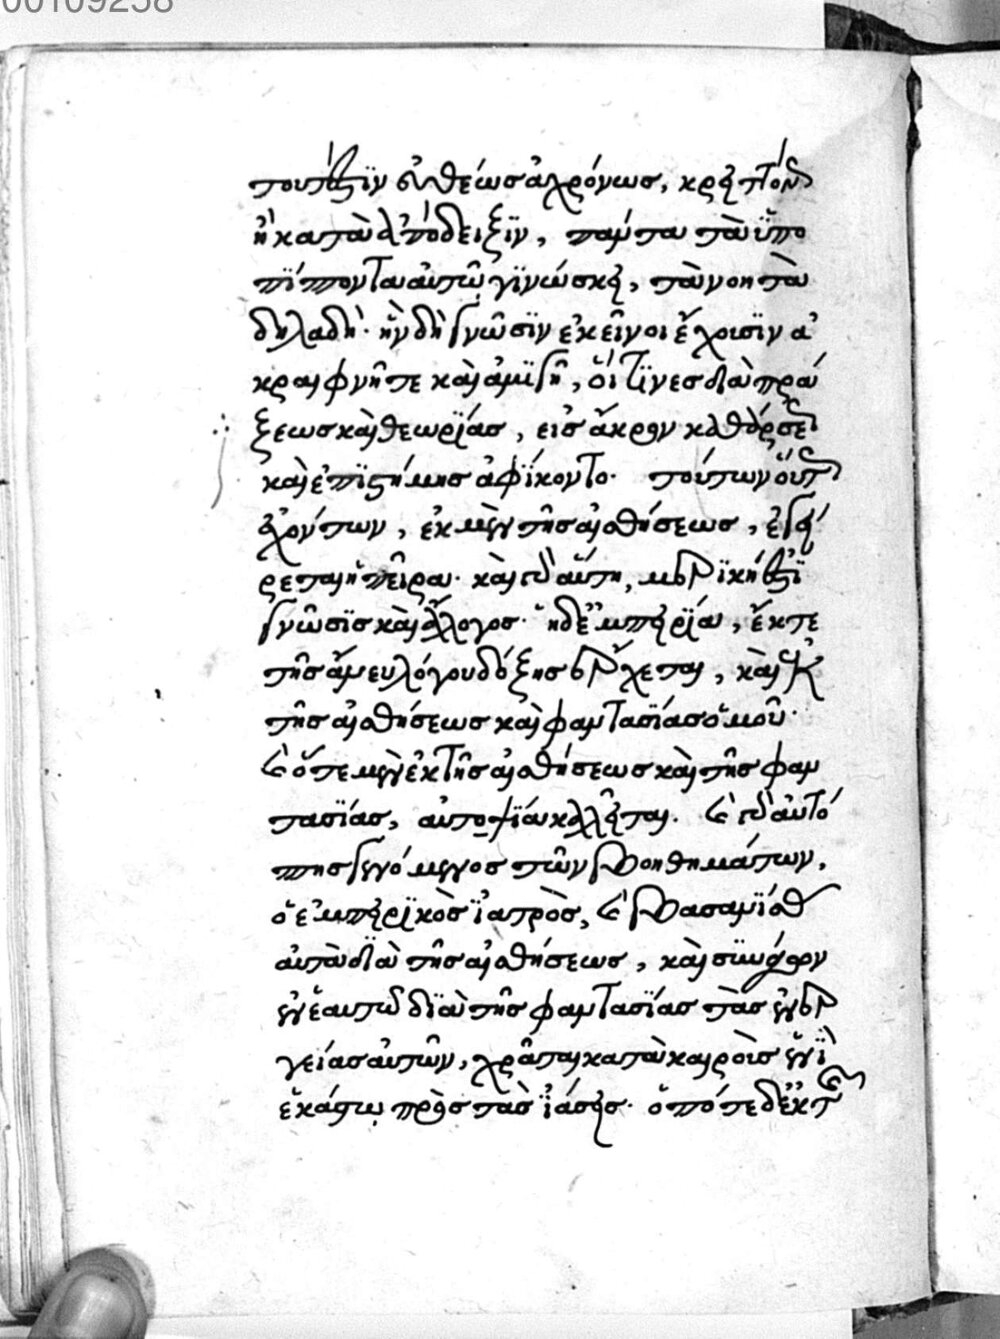 00109258
τουτέστιν εὐθέως ἀχρόνως, κρεῖττον
ἢ κατὰ ἀπόδειξϊν, πάντα τὰ ὑπο
πΐπτοντα αὐτῶ γϊνώσκει, τὰ νοητὰ
δηλαδή· ἣν δὴ γνῶσϊν ἐκεῖνοι ἔχουσϊν ἀ
κραιφνῆ τε καὶ ἀμϊγῆ, οἵ τϊνες διὰ πρά
ξεως καὶ θεωρΐας, εἰς ἄκρον καθάρσεως
καὶ ἐπϊστήμης ἀφΐκοντο· τούτων οὕτως
ἐχόντων, ἐκ μὲν τῆς αἰσθήσεως, ἐγεί
ρεται ἡ πεῖρα· καὶ ἔστιν αὕτη, μερϊκή ἐστϊ
γνῶσϊς καὶ ἄλογος· ἡ δὲ ἐμπειρΐα, ἔκ τε
τῆς ἄνευ λόγου δόξης ἔρχεται, καὶ ἐκ
τῆς αἰσθήσεως καὶ φαντασΐας ὁμοῦ·
ὅτε μὲν ἐκ τῆς αἰσθήσεως καὶ τῆς φαν
τασΐας, αὐτοψΐα καλεῖται. αὐτό
πτης γενόμενος τῶν βοηθημάτων,
ὁ ἐμπειρϊκὸς ἰατρὸς, καὶ βασανΐσας
αὐτὰ διὰ τῆς αἰσθήσεως, καὶ συνάγων
ἐν ἑαυτῶ διὰ τῆς φαντασΐας τὰς ἐνερ
γείας αὐτῶν, χρᾶται κατὰ καιροὺς ἐνὶ
ἑκάστῳ πρὸς τὰς ἰάσεις· ὁπότε δὲ ἐκ τῆς